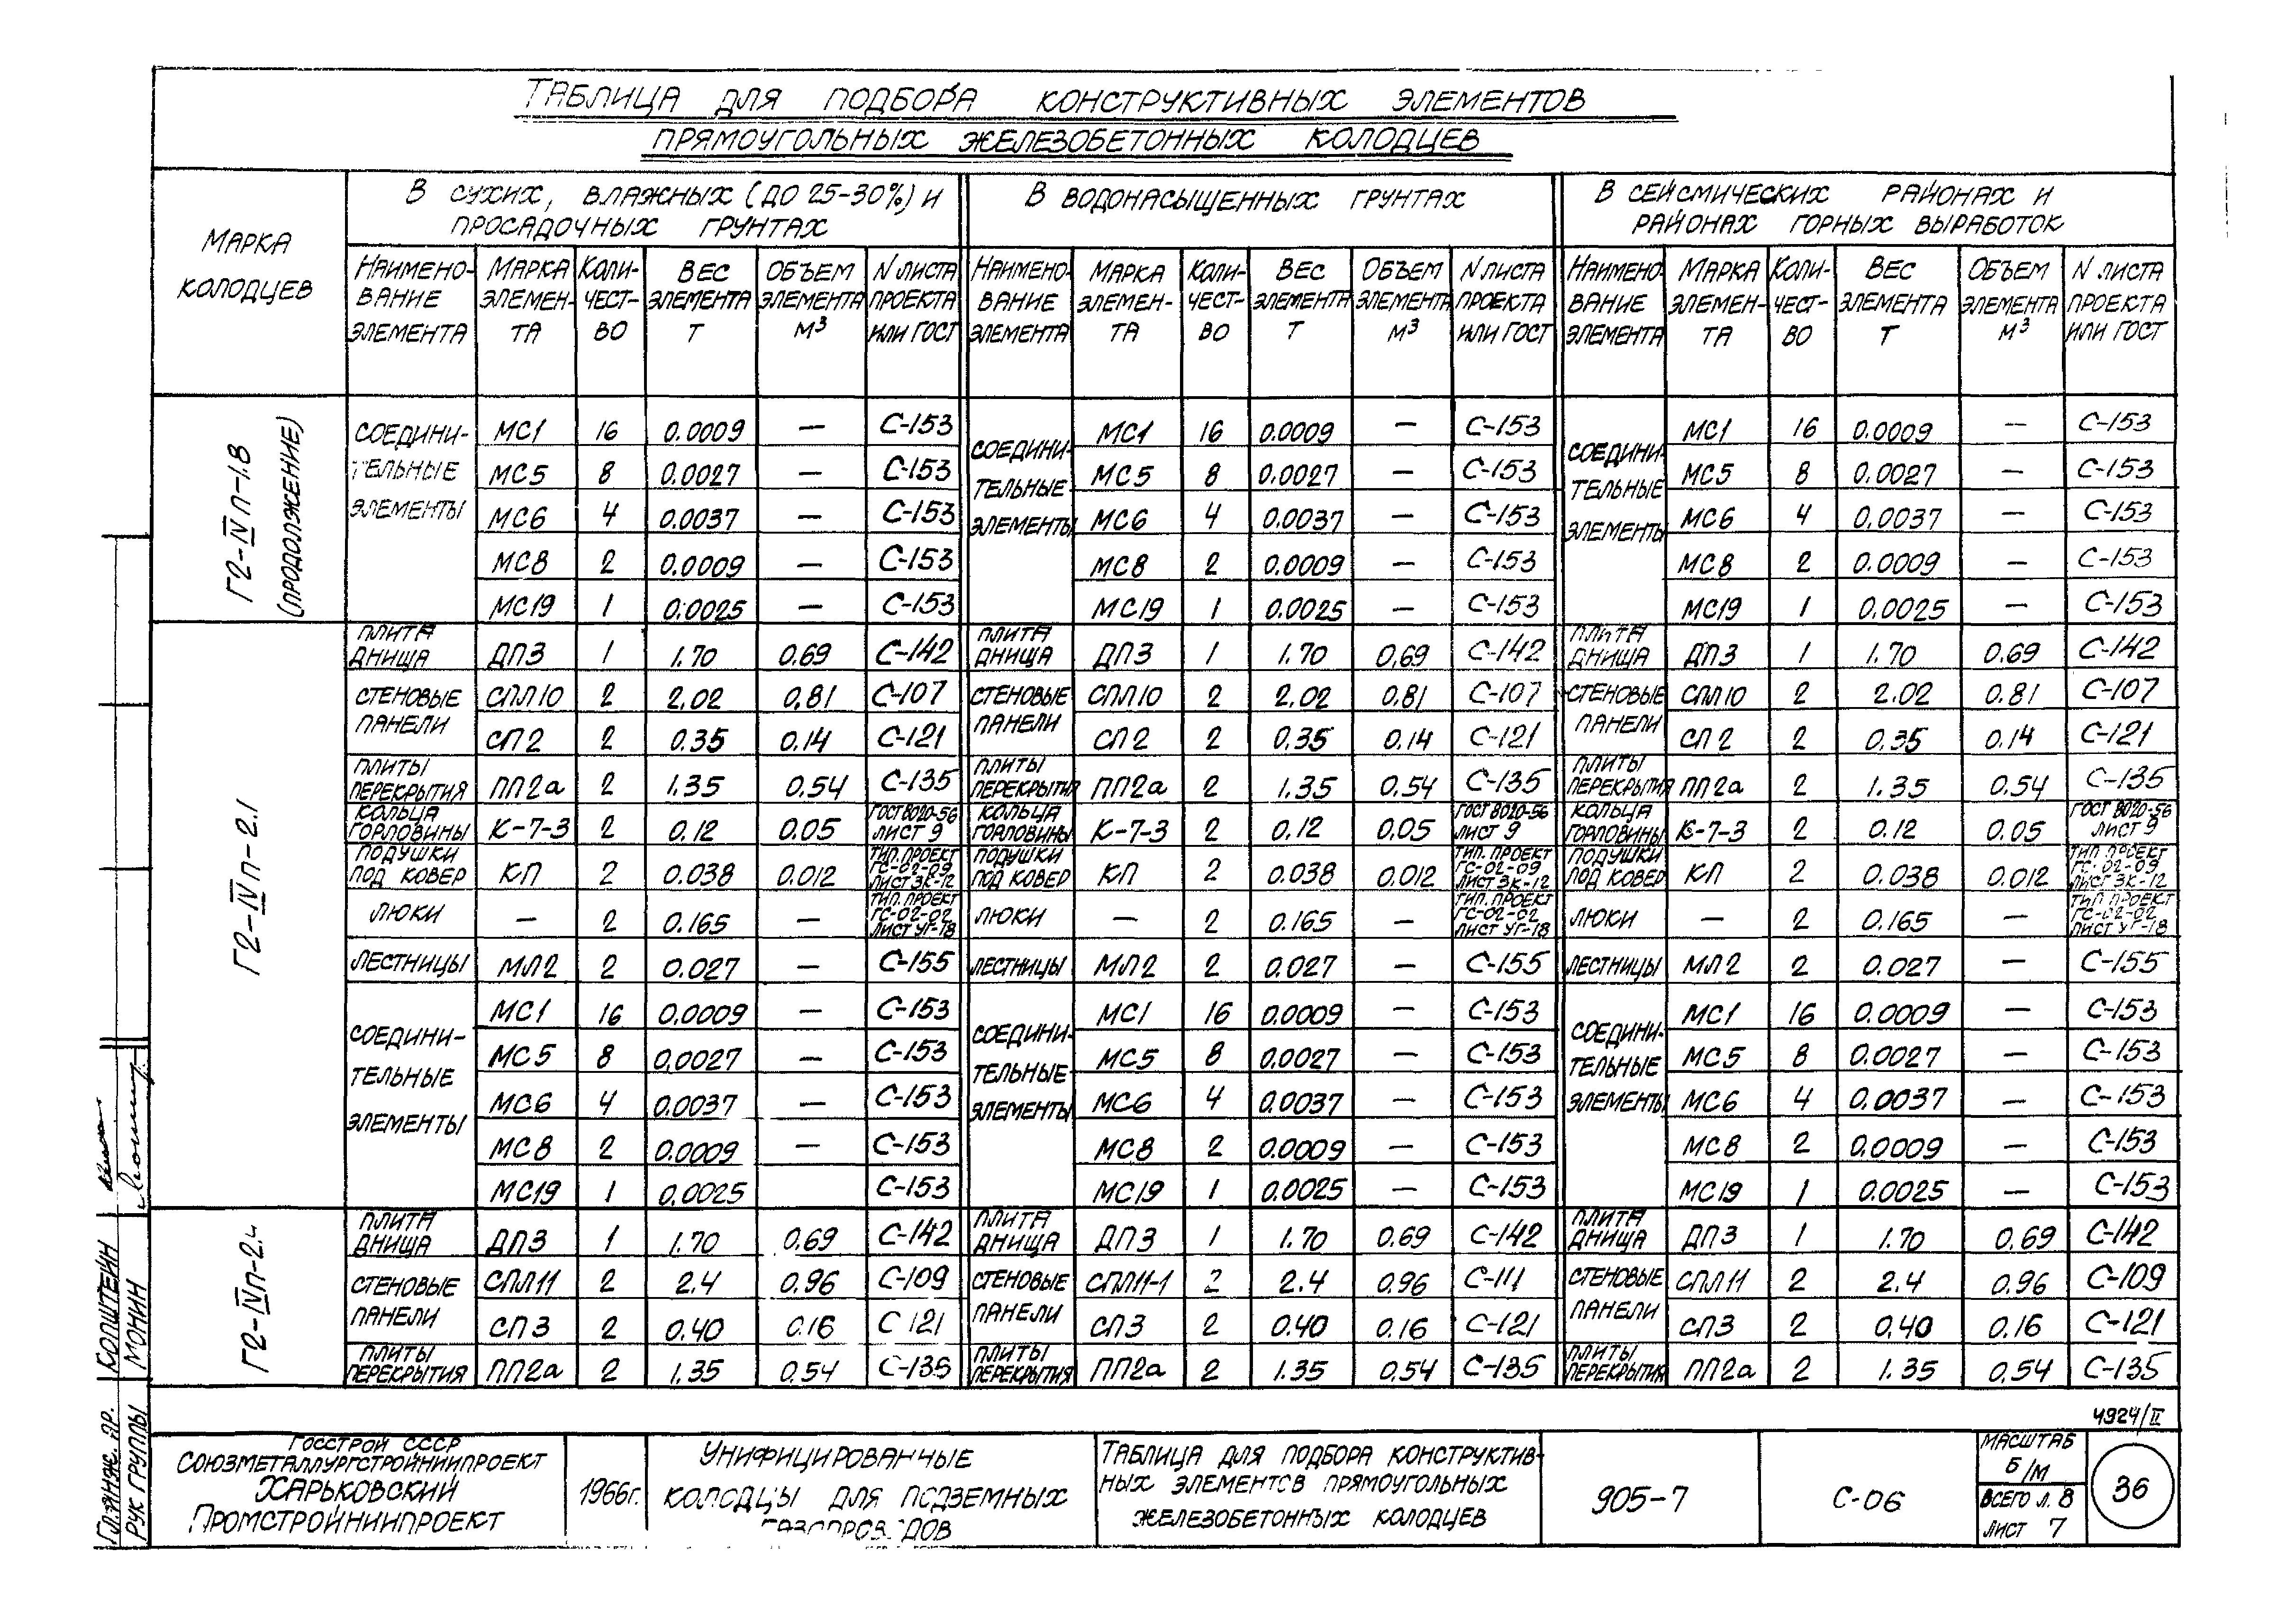 ТАБЛИЦА ДЛЯ ПОДБОРА КОНСТРУКТИВНЫХ ЭЛЕМЕНТОВ
ПРЯМОУГОЛЬНЫХ ЖЕЛЕЗОБЕТОННЫХ КОЛОДЦЕВ
МАРКА КОЛОДЦЕВ
В СУХИХ, ВЛАЖНЫХ (ДО 25-30%) И ПРОСАДОЧНЫХ ГРУНТАХ
В ВОДОНАСЫЩЕННЫХ ГРУНТАХ
В СЕЙСМИЧЕСКИХ РАЙОНАХ И РАЙОНАХ ГОРНЫХ ВЫРАБОТОК
НАИМЕНО- МАРКА КОЛИ- ВЕС ОБЪЕМ N ЛИСТА НАИМЕНО- МАРКА КОЛИ- ВЕС ОБЪЕМ N ЛИСТА НАИМЕНО- МАРКА КОЛИ- ВЕС ОБЪЕМ N ЛИСТА
ВАНИЕ ЭЛЕМЕН- ЧЕСТ- ЭЛЕМЕНТА ЭЛЕМЕНТА ПРОЕКТА ВАНИЕ ЭЛЕМЕН- ЧЕСТ- ЭЛЕМЕНТА ЭЛЕМЕНТА ПРОЕКТА ВАНИЕ ЭЛЕМЕН- ЧЕСТ- ЭЛЕМЕНТА ЭЛЕМЕНТА ПРОЕКТА
ЭЛЕМЕНТА ТА ВО Т М³ ИЛИ ГОСТ ЭЛЕМЕНТА ТА ВО Т М³ ИЛИ ГОСТ ЭЛЕМЕНТА ТА ВО Т М³ ИЛИ ГОСТ
Г2-IVП-1.8
(ПРОДОЛЖЕНИЕ)
СОЕДИНИ- МС1 16 0.0009 — С-153 СОЕДИНИ- МС1 16 0.0009 — С-153 СОЕДИНИ- МС1 16 0.0009 — С-153
ТЕЛЬНЫЕ МС5 8 0.0027 — С-153 ТЕЛЬНЫЕ МС5 8 0.0027 — С-153 ТЕЛЬНЫЕ МС5 8 0.0027 — С-153
ЭЛЕМЕНТЫ МС6 4 0.0037 — С-153 ЭЛЕМЕНТЫ МС6 4 0.0037 — С-153 ЭЛЕМЕНТЫ МС6 4 0.0037 — С-153
МС8 2 0.0009 — С-153 МС8 2 0.0009 — С-153 МС8 2 0.0009 — С-153
МС19 1 0.0025 — С-153 МС19 1 0.0025 — С-153 МС19 1 0.0025 — С-153
Г2-IVП-2.1
ПЛИТА ДНИЩА ДП3 1 1.70 0.69 С-142 ПЛИТА ДНИЩА ДП3 1 1.70 0.69 С-142 ПЛИТА ДНИЩА ДП3 1 1.70 0.69 С-142
СТЕНОВЫЕ СПЛ10 2 2.02 0.81 С-107 СТЕНОВЫЕ СПЛ10 2 2.02 0.81 С-107 СТЕНОВЫЕ СПЛ10 2 2.02 0.81 С-107
ПАНЕЛИ СП2 2 0.35 0.14 С-121 ПАНЕЛИ СП2 2 0.35 0.14 С-121 ПАНЕЛИ СП2 2 0.35 0.14 С-121
ПЛИТЫ ПЕРЕКРЫТИЯ ПП2а 2 1.35 0.54 С-135 ПЛИТЫ ПЕРЕКРЫТИЯ ПП2а 2 1.35 0.54 С-135 ПЛИТЫ ПЕРЕКРЫТИЯ ПП2а 2 1.35 0.54 С-135
КОЛЬЦА ГОРЛОВИНЫ К-7-3 2 0.12 0.05 ГОСТ 8020-56 ЛИСТ 9 КОЛЬЦА ГОРЛОВИНЫ К-7-3 2 0.12 0.05 ГОСТ 8020-56 ЛИСТ 9 КОЛЬЦА ГОРЛОВИНЫ К-7-3 2 0.12 0.05 ГОСТ 8020-56 ЛИСТ 9
ПОДУШКИ ПОД КОВЕР КП 2 0.038 0.012 ТИП. ПРОЕКТ ГС-02-09 ЛИСТ ЗК-12 ПОДУШКИ ПОД КОВЕР КП 2 0.038 0.012 ТИП. ПРОЕКТ ГС-02-09 ЛИСТ ЗК-12 ПОДУШКИ ПОД КОВЕР КП 2 0.038 0.012 ТИП. ПРОЕКТ ГС-02-09 ЛИСТ ЗК-12
ЛЮКИ — 2 0.165 — ТИП. ПРОЕКТ ГС-02-02 ЛИСТ УГ-18 ЛЮКИ — 2 0.165 — ТИП. ПРОЕКТ ГС-02-02 ЛИСТ УГ-18 ЛЮКИ — 2 0.165 — ТИП. ПРОЕКТ ГС-02-02 ЛИСТ УГ-18
ЛЕСТНИЦЫ МЛ2 2 0.027 — С-155 ЛЕСТНИЦЫ МЛ2 2 0.027 — С-155 ЛЕСТНИЦЫ МЛ2 2 0.027 — С-155
СОЕДИНИ- МС1 16 0.0009 — С-153 СОЕДИНИ- МС1 16 0.0009 — С-153 СОЕДИНИ- МС1 16 0.0009 — С-153
ТЕЛЬНЫЕ МС5 8 0.0027 — С-153 ТЕЛЬНЫЕ МС5 8 0.0027 — С-153 ТЕЛЬНЫЕ МС5 8 0.0027 — С-153
ЭЛЕМЕНТЫ МС6 4 0.0037 — С-153 ЭЛЕМЕНТЫ МС6 4 0.0037 — С-153 ЭЛЕМЕНТЫ МС6 4 0.0037 — С-153
МС8 2 0.0009 — С-153 МС8 2 0.0009 — С-153 МС8 2 0.0009 — С-153
МС19 1 0.0025 С-153 МС19 1 0.0025 — С-153 МС19 1 0.0025 — С-153
Г2-IVП-2.4
ПЛИТА ДНИЩА ДП3 1 1.70 0.69 С-142 ПЛИТА ДНИЩА ДП3 1 1.70 0.69 С-142 ПЛИТА ДНИЩА ДП3 1 1.70 0.69 С-142
СТЕНОВЫЕ СПЛ11 2 2.4 0.96 С-109 СТЕНОВЫЕ СПЛ11-1 2 2.4 0.96 С-111 СТЕНОВЫЕ СПЛ11 2 2.4 0.96 С-109
ПАНЕЛИ СП3 2 0.40 0.16 С 121 ПАНЕЛИ СП3 2 0.40 0.16 С-121 ПАНЕЛИ СП3 2 0.40 0.16 С-121
ПЛИТЫ ПЕРЕКРЫТИЯ ПП2а 2 1.35 0.54 С-135 ПЛИТЫ ПЕРЕКРЫТИЯ ПП2а 2 1.35 0.54 С-135 ПЛИТЫ ПЕРЕКРЫТИЯ ПП2а 2 1.35 0.54 С-135
4924/II
ГЛ. ИНЖ. ПР. КОПШТЕЙН
РУК ГРУППЫ МОНИН
ГОССТРОЙ СССР
СОЮЗМЕТАЛЛУРГСТРОЙНИИПРОЕКТ
ХАРЬКОВСКИЙ
ПРОМСТРОЙНИИПРОЕКТ
1966г.
УНИФИЦИРОВАННЫЕ
КОЛОДЦЫ ДЛЯ ПОДЗЕМНЫХ
ГАЗОПРОВОДОВ
ТАБЛИЦА ДЛЯ ПОДБОРА КОНСТРУКТИВ-
НЫХ ЭЛЕМЕНТОВ ПРЯМОУГОЛЬНЫХ
ЖЕЛЕЗОБЕТОННЫХ КОЛОДЦЕВ
905-7
С-06
МАСШТАБ
Б/М
ВСЕГО Л. 8
ЛИСТ 7
36